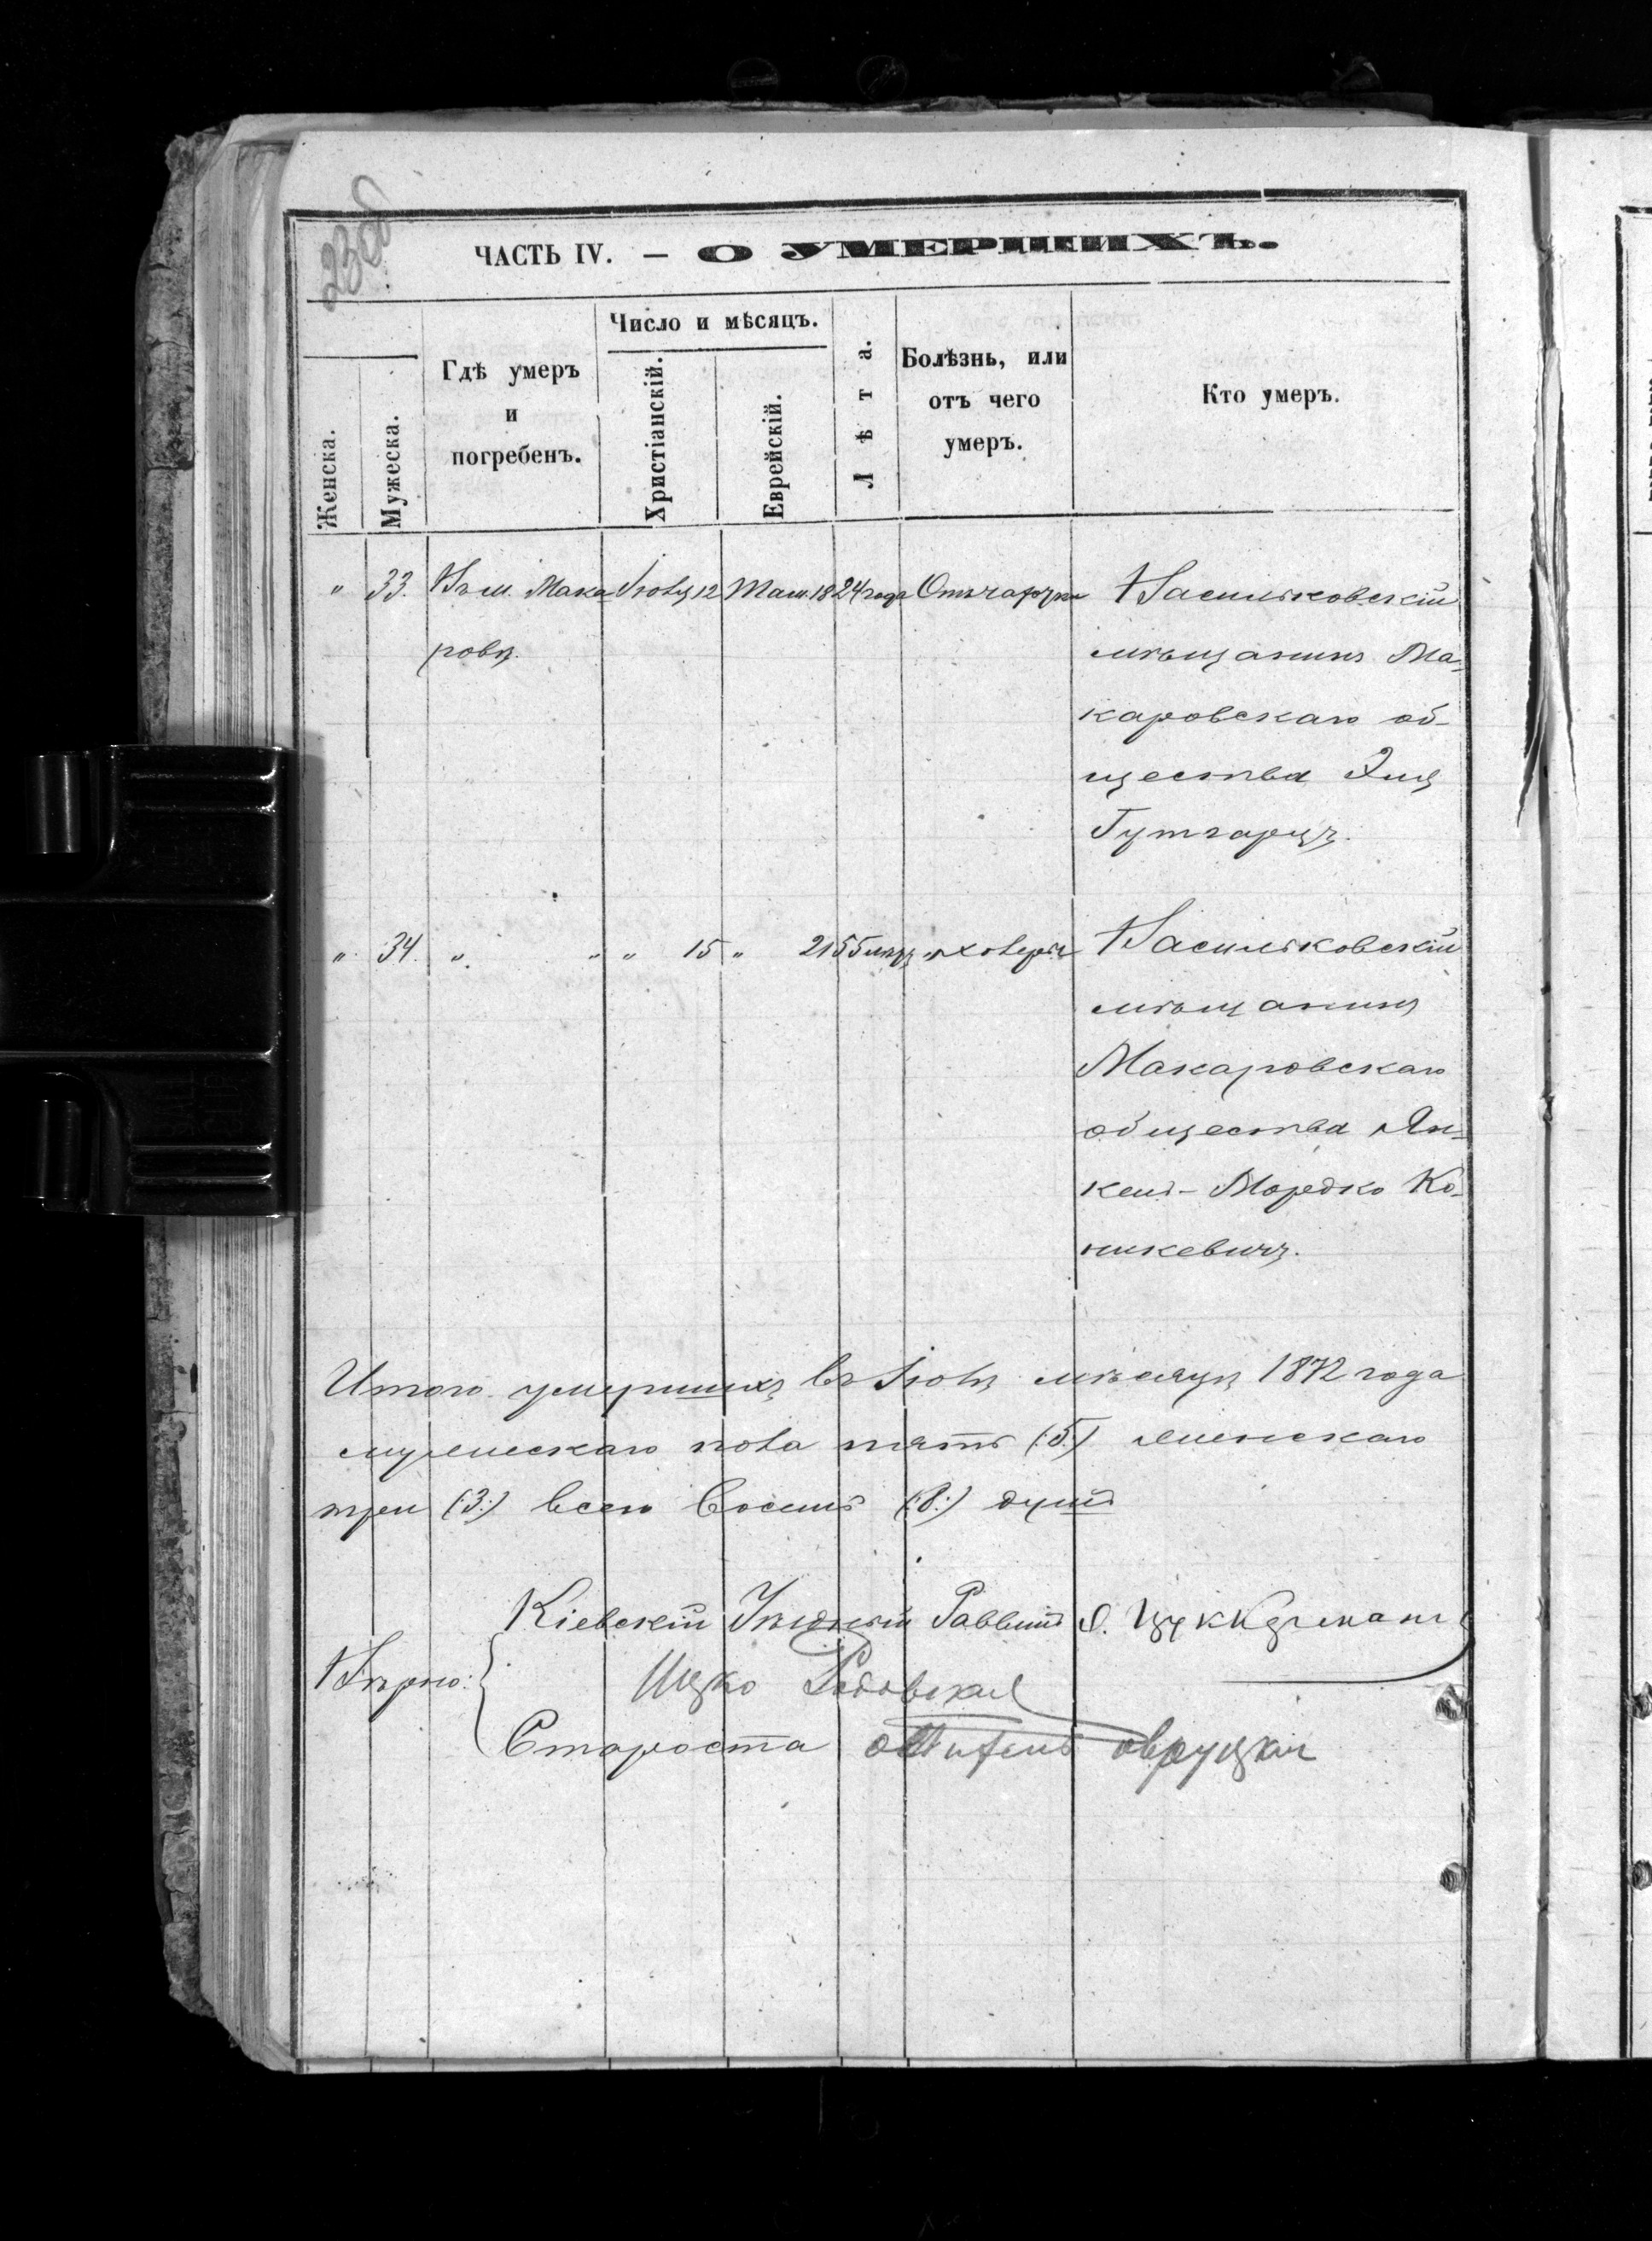 230
ЧАСТЬ IV. — О УМЕРШИХЪ.
Женска.
Мужеска.
Гдѣ умеръ
и
погребенъ.
Число и мѣсяцъ.
Христіанскій.
Еврейскій.
Лѣта.
Болѣзнь, или
отъ чего
умеръ.
Кто умеръ.
" 33. Въ м. Мака Іюля 12 Там. 18 24 года Отъ чахотки Васильковскій
ровѣ. мѣщанинъ Ма-
каровскаго об-
щества
Гутгарцъ.
" 34. " " " 15 " 21 55 лѣтъ " холеры Васильковскій
мѣщанинъ
Макаровскаго
общества Ян-
кель-Мордко Ко-
никевичъ.
Итого умершихъ въ Іюлѣ мѣсяцѣ 1872 года
мужескаго пола пять (:5:) женскаго
три (:3:) всего восемь (:8:) душъ
Кіевскій Уѣздный Раввинъ Цуккерманъ
Вѣрно: Ицко
Староста Овруцкій